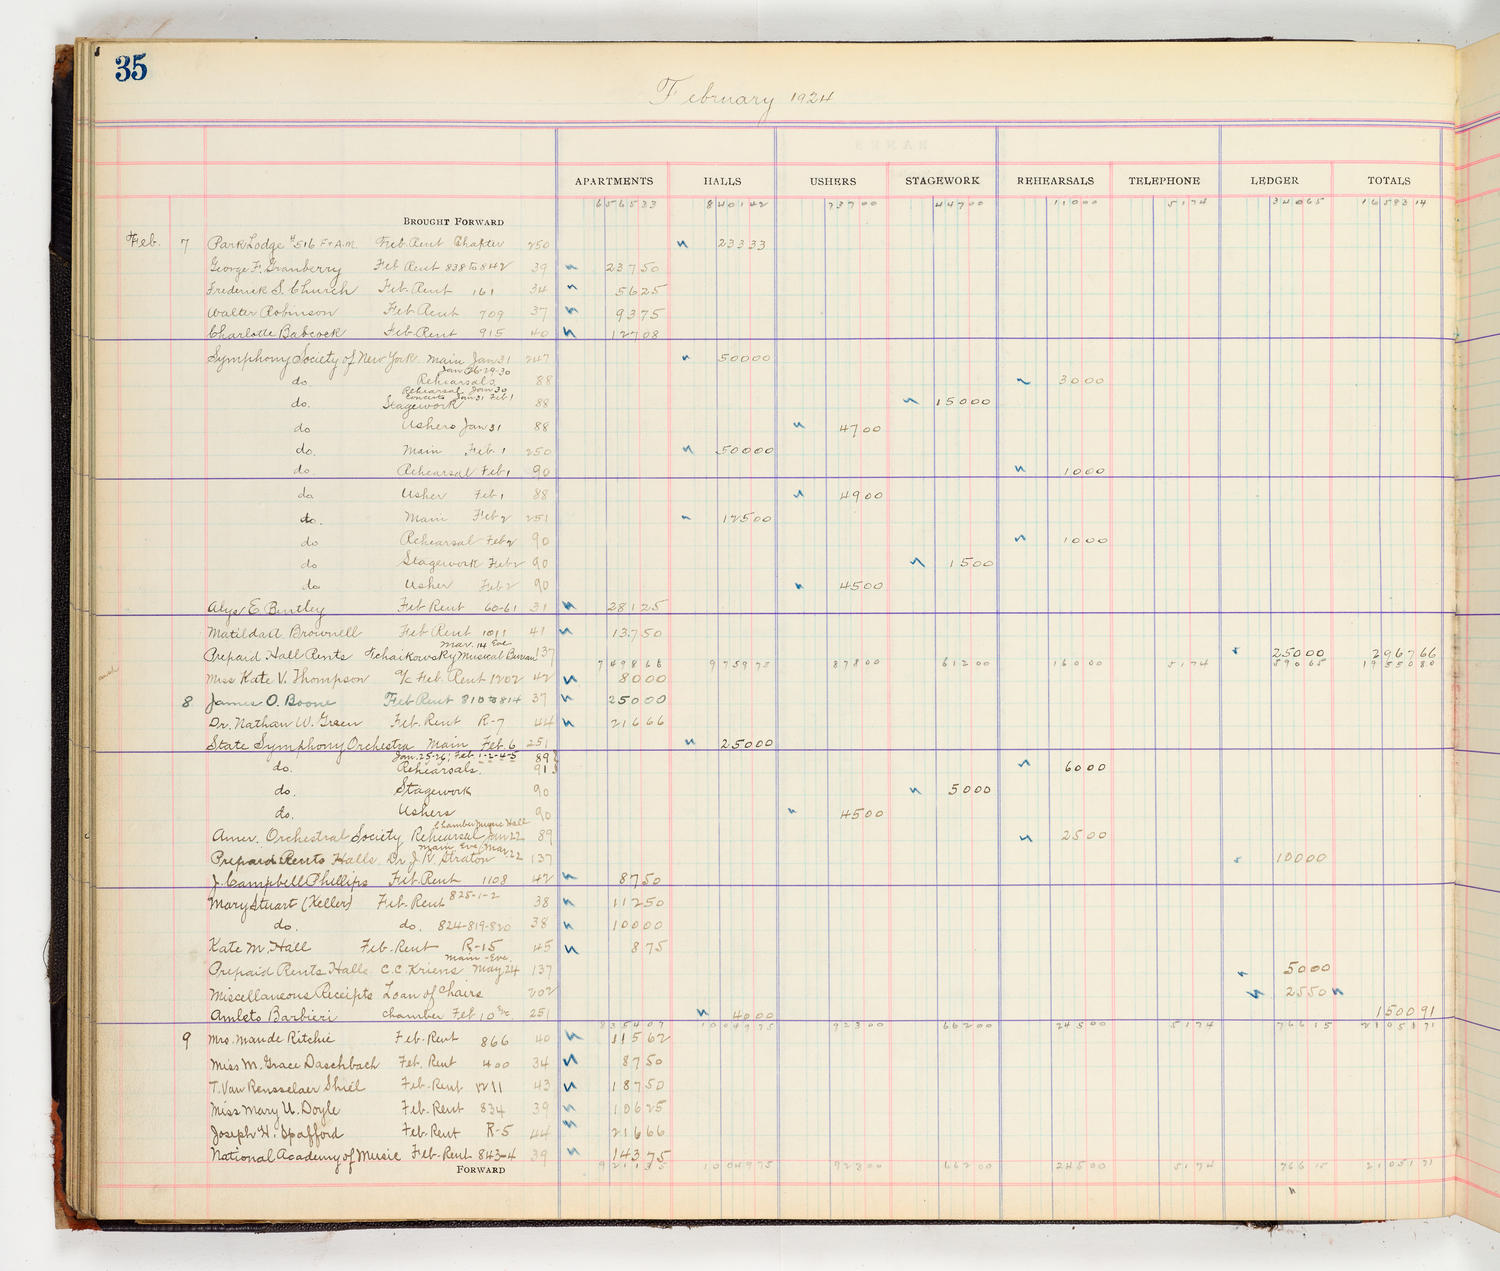 35
February 1924
APARTMENTS HALLS USHERS STAGEWORK REHEARSALS TELEPHONE LEDGER TOTALS
BROUGHT FORWARD 656533 840142 73700 44700 11000 5174 34065 1658314
Feb. 7 Park Lodge #516 F+A.M. Feb. Rent Chapter 250 23333
George F. Granberry Feb Rent 838 to 842 39 23750
Frederick S. Church Feb. Rent 161 34 5625
Walter Robinson Feb Rent 709 37 9375
Charlotte Babcock Feb. Rent 915 40 12708
Symphony Society of New York. Main Jan 31 247 50000
do. Rehearsals Jan 26-29-30 88 3000
do. Stagework Rehearsal Jan 30 Concerts Jan 31 Feb 1 88 15000
do Ushers Jan 31 88 4700
do. Main Feb 1 250 50000
do. Rehearsal Feb 1 90 1000
do Usher Feb 1 88 4900
do. Main Feb 2 251 12500
do Rehearsal Feb 2 90 1000
do Stagework Feb 2 90 1500
do Usher Feb 2 90 4500
Alys E. Bentley Feb Rent 60-61 31 28125
Matilda A. Brownell Feb Rent 1011 41 13750
Prepaid Hall Rents Tchaikowsky Musical Bureau Mar. 14 Eve 137 25000 296766
749868 975975 87800 61200 16000 5174 59065 1955080
Miss Kate V. Thompson a/c Feb. Rent 1202 42 8000
8 James O. Boone Feb Rent 810 to 814 37 25000
Dr. Nathan W. Green Feb. Rent R-7 44 21666
State Symphony Orchestra Main Feb. 6 251 25000
do. Rehearsals. Jan. 25-26; Feb 1-2-4-5 89 91 6000
do. Stagework 90 5000
do. Ushers 90 4500
Amer. Orchestral Society Rehearsal Jan 22 Chamber Music Hall 89 2500
Prepaid Rents Halls Dr J.R. Straton Main Eve Mar 22 137 10000
J. Campbell Phillips Feb. Rent 1108 42 8750
Mary Stuart (Keller) Feb. Rent 825-1-2 38 11250
do. do. 824-819-820 38 10000
Kate M. Hall Feb. Rent R-15 45 875
Prepaid Rents Halls C.C. Kriens Main-Eve. May 24 137 5000
Miscellaneous Receipts Loan of Chairs 202 2550
Amleto Barbieri Chamber Feb 10 Eve 251 4000 150091
835407 1004975 92300 66200 24500 5174 76615 2105171
9 Mrs. Maude Ritchie Feb. Rent 866 40 11562
Miss M. Grace Daschbach Feb. Rent 400 34 8750
T. Van Rensselaer Shiel Feb. Rent 1211 43 18750
Miss Mary U. Doyle Feb. Rent 834 39 10625
Joseph H. Spafford Feb. Rent R-5 44 21666
National Academy of Music Feb. Rent 843-4 39 14375
FORWARD 921135 1004975 92300 66200 24500 5174 76615 2105171